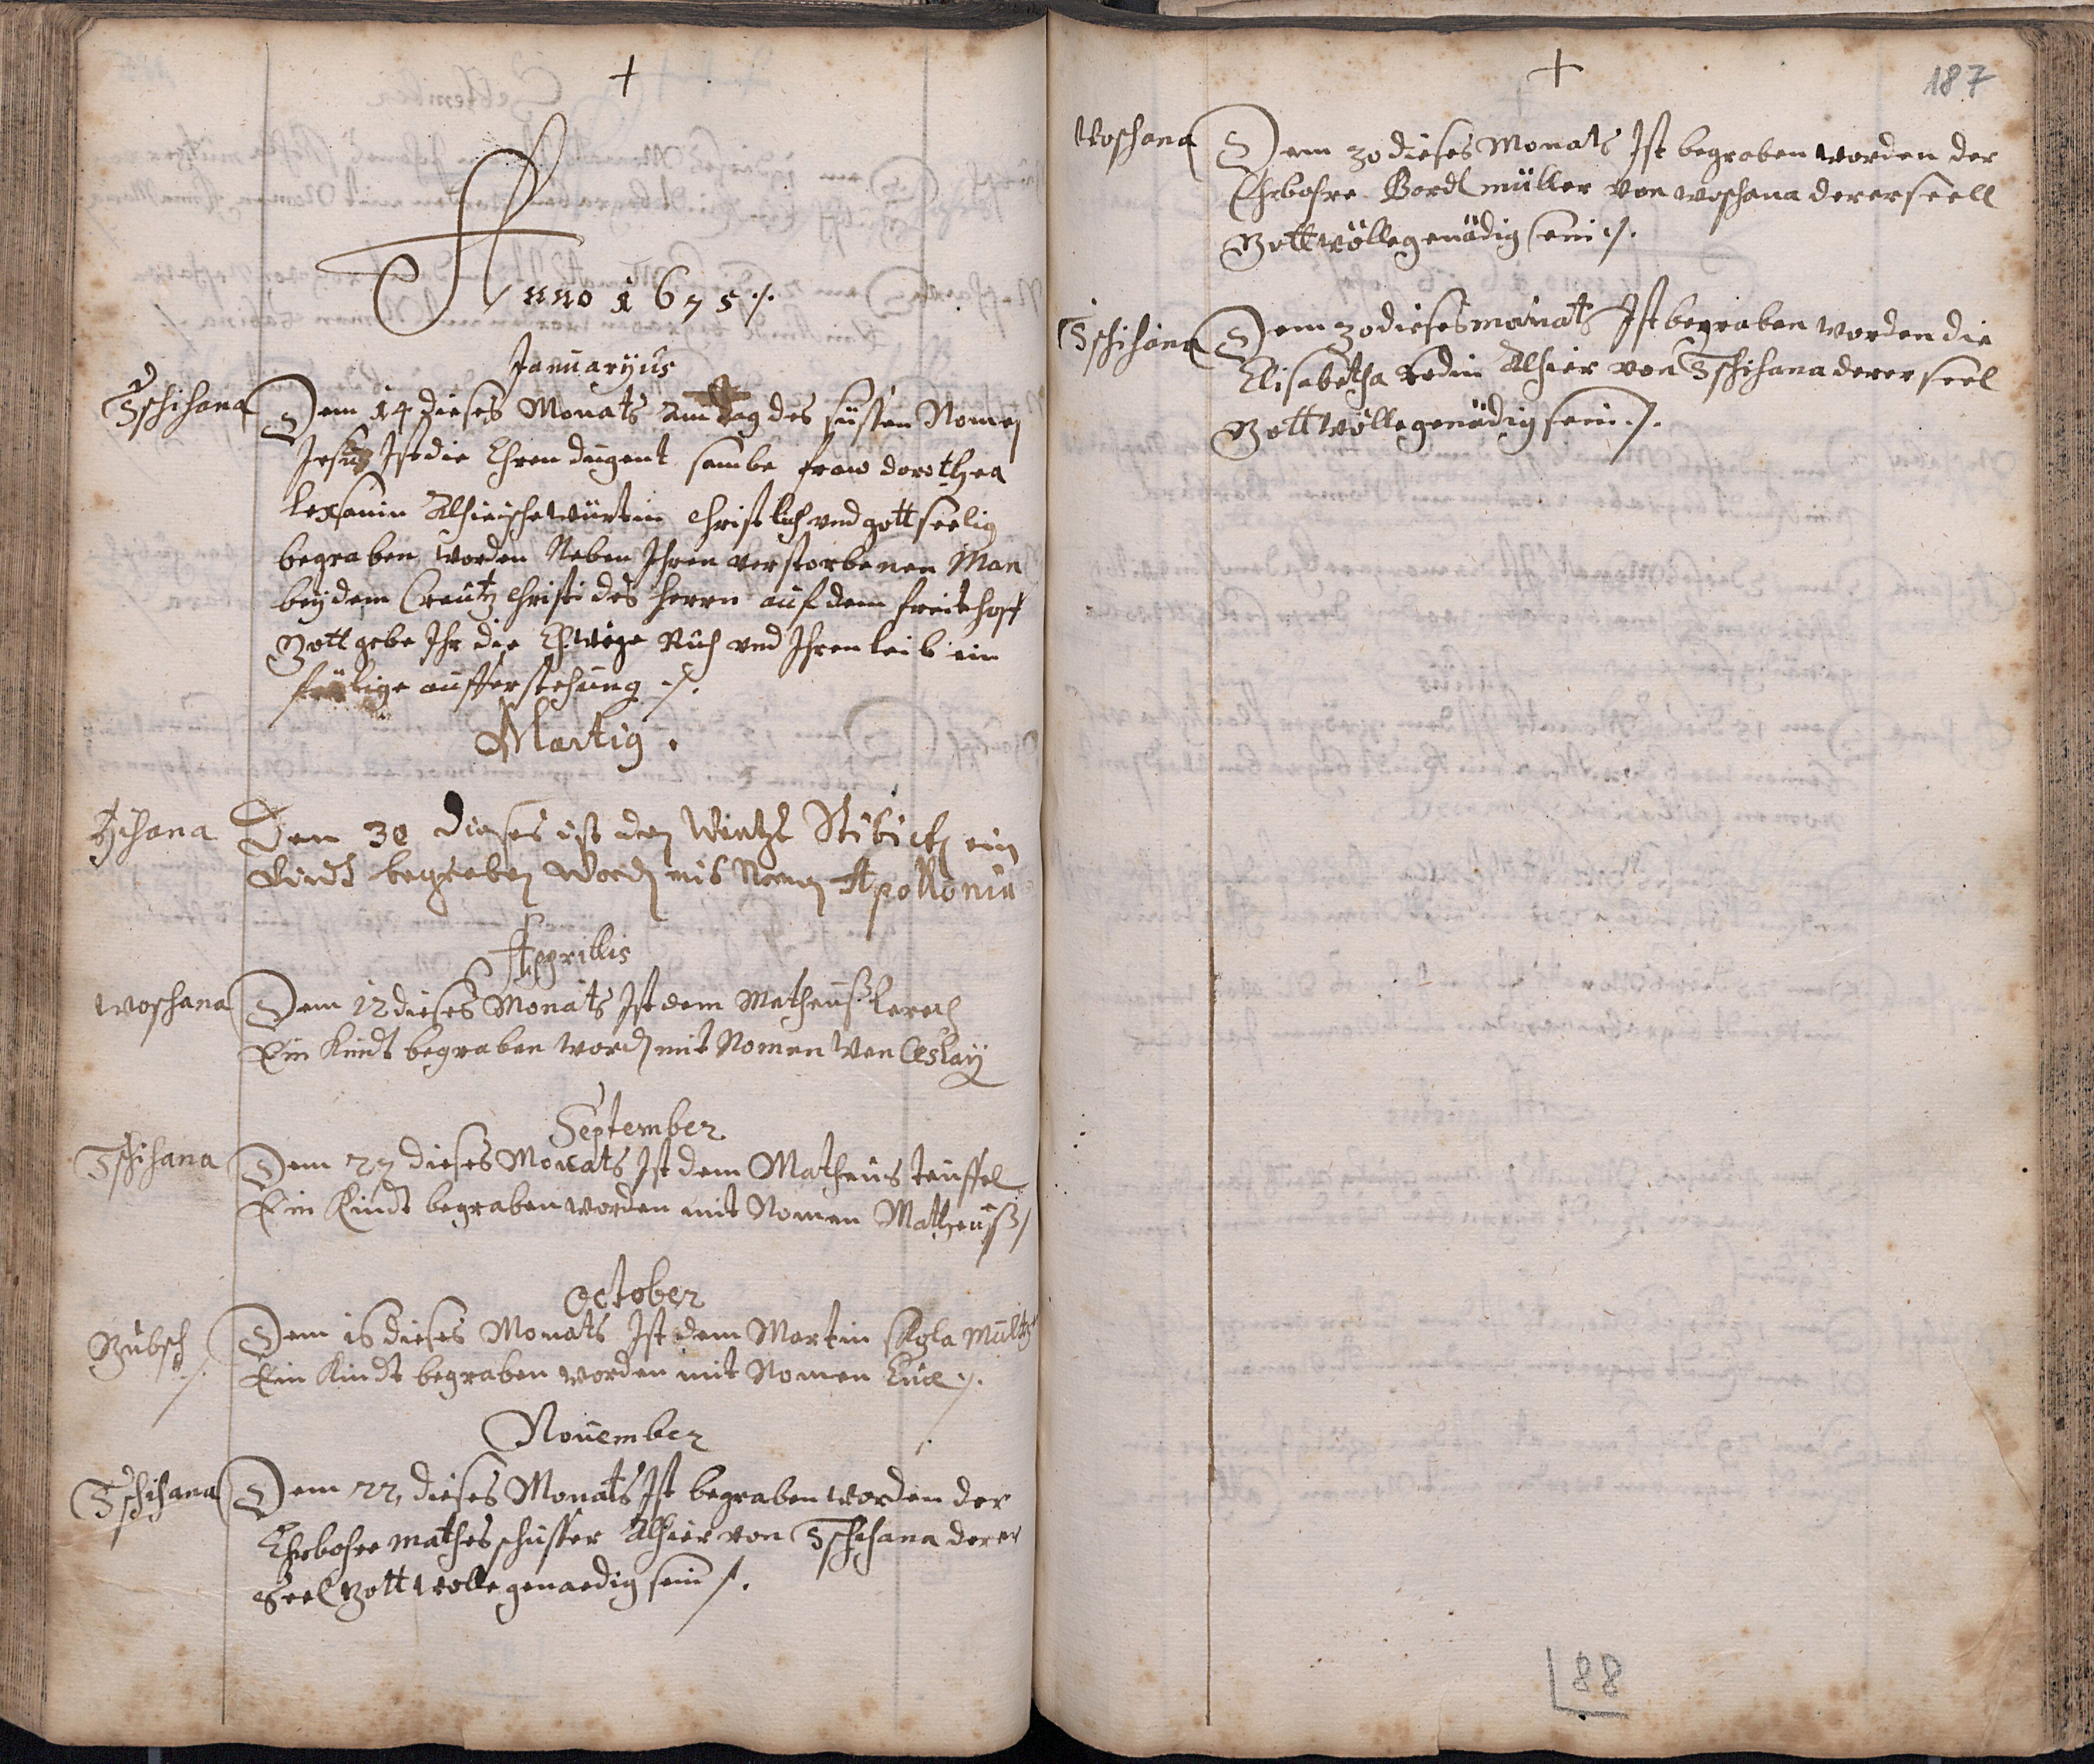 Anno 1675 ./.
Januaryus
Tschihana Dem 14 dieses Monats Am tag des süssen Nomen
Jesus Ist die Ehren dugent sambe fraw dorothea
Alhieische würtin christlich und gott seelig
begraben worden Neben Ihren verstorbenen Man
bey dem Creutz christi des herrn auf dem freithoff
Gott gebe Ihr die Ehwige Ruh und Ihren leib ein
fröliche aufferstehung ./.
Martig.
Den 30 dieses ist den Wentzl ein
Kindt begraben Worden mit Nomen Apollonia
Apprillis
woschana Dem 12 dieses Monats Ist dem Matheuß
Ein Kindt begraben worden mit Nomen Wenceslay
September
Tschihana Dem 27 dieses Monats Ist dem Matheus teuffel
Ein Kindt begraben worden mit Nomen Matheuß /
October
Gübsch /. Dem 16 dieses Monats Ist dem Martin
Ein Kindt begraben worden mit Nomen ./.
November
Tschihana Dem 22, dieses Monats Ist begraben worden der
Ehrbohre mathes schuster Alhier von Tschihana derer
Seel Gott wolle genaedig sein ./.
187
Woschana Dem 30 dieses Monats Ist begraben worden der
Ehrbohre Bardl müller von woschana derer seell
Gott wölle genädig sein ./.
Tschihana Dem 30 dieses monats Ist begraben worden die
Elisabetha Alhier von Tschihana derer seel
Gott wölle genädig sein ./.
88